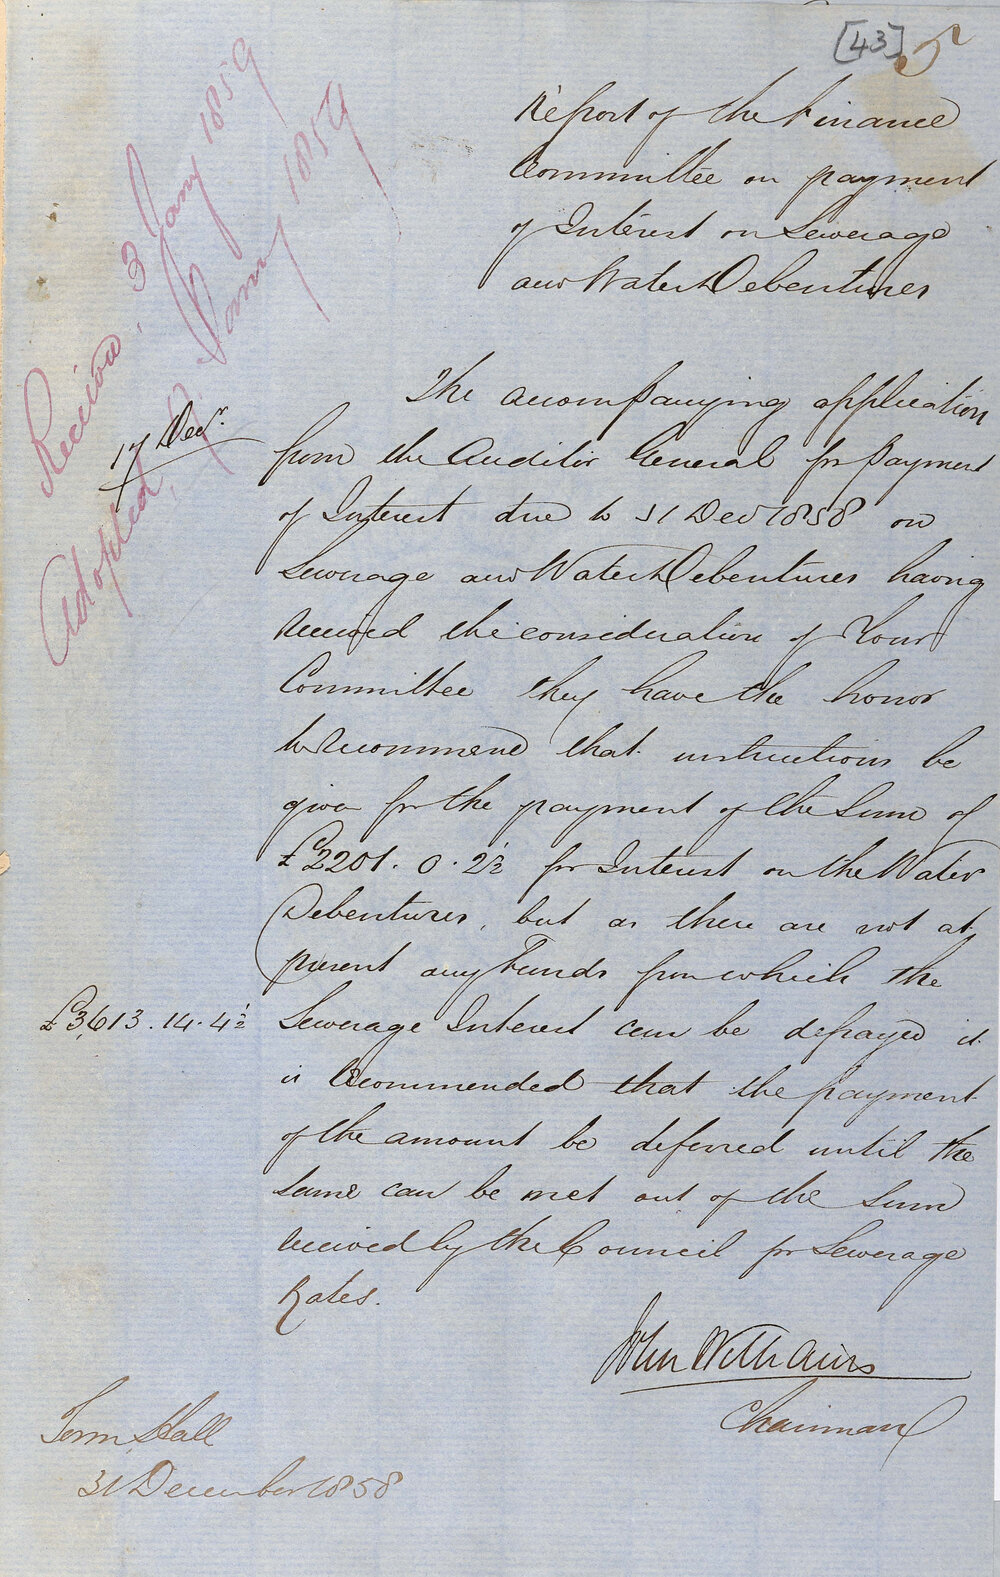 [43] 5
Report of the Finance
Committee on payment
of Interest on Sewerage
and Water Debentures
Received. 3 Jany 1859
Adopted. Jany 1859
The accompanying application
17 Decr.
from the Auditor General for payment
of Interest due to 31 Dec 1858 on
Sewerage and Water Debentures having
received the consideration of Your
Committee they have the honor
to recommend that instructions be
given for the payment of the Sum of
£2201. 0. 2½ for Interest on the Water
Debentures, but as there are not at
present any Funds from which the
£3,613. 14. 4½
Sewerage Interest can be defrayed it
is recommended that the payment
of the amount be deferred until the
same can be met out of the sum
received by the Council for Sewerage
Rates.
John Williams
Chairman
Town Hall
31 December 1858